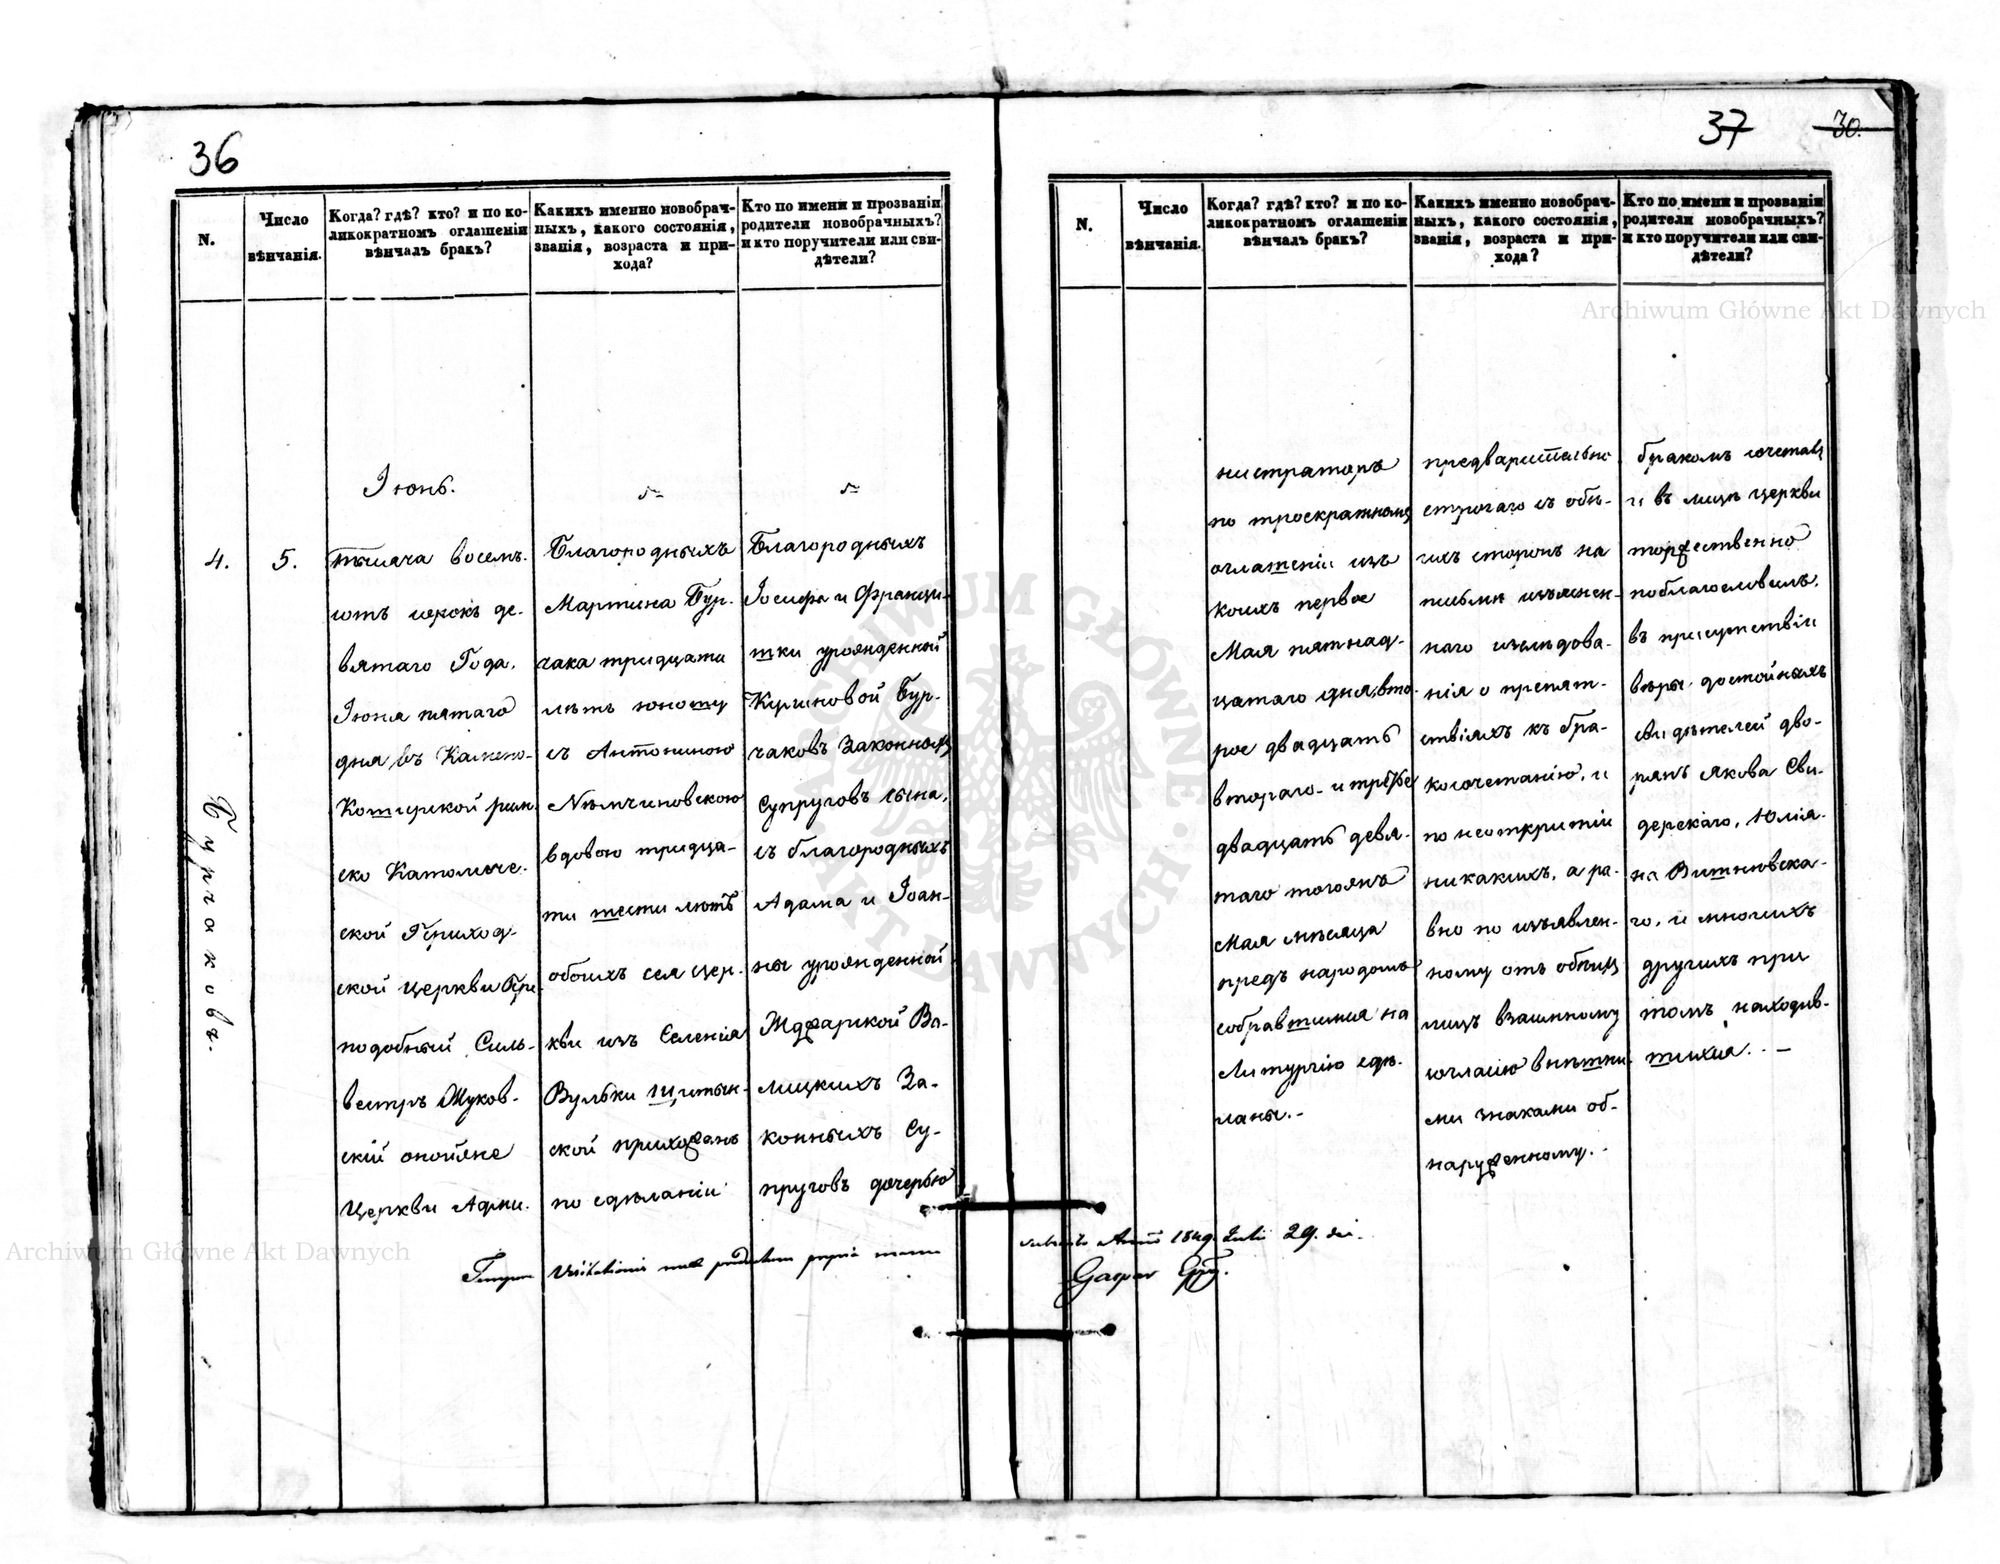 36
N.
Число
вѣнчанія.
Когда? гдѣ? кто? и по ко-
ликократномъ оглашеніи
вѣнчалъ бракъ?
Какихъ именно новобрач-
ныхъ, какого состоянія,
званія, возраста и при-
хода?
Кто по имени и прозванію
родители новобрачныхъ?
и кто поручители или сви-
дѣтели?
Бурчаковъ.
4.
5.
Іюнь.
Тысяча восемь-
сотъ сорокъ де-
вятаго Года,
Іюня пятаго
дня въ Камено-
Коширской рим-
ско Католиче-
ской Приход-
ской церкви Пре-
подобный Силь-
вестръ Жуков-
скій оной же
Церкви Адми-
Благородныхъ
Мартина Бур-
чака тридцати
лѣтъ юношу
съ Антониною
Нѣмчиновскою
вдовою тридца-
ти шести лѣтъ
обоихъ сея цер-
кви изъ Селенія
Вульки Щитын-
ской прихожанъ
по сдѣланіи
Благородныхъ
Іосифа и Франци-
шки урожденной
Бур-
чаковъ Законныхъ
Супруговъ сына,
съ благородныхъ
Адама и Іоан-
ны урожденной
Ва-
лицкихъ За-
конныхъ Су-
пруговъ дочерью
Tempore Visitationis
37
30.
N.
Число
вѣнчанія.
Когда? гдѣ? кто? и по ко-
ликократномъ оглашеніи
вѣнчалъ бракъ?
Какихъ именно новобрач-
ныхъ, какого состоянія,
званія, возраста и при-
хода?
Кто по имени и прозванію
родители новобрачныхъ?
и кто поручители или сви-
дѣтели?
нистраторъ
по троекратномъ
оглашеніи изъ
коихъ первое
Мая пятнад-
цатаго дня, вто-
рое двадцать
втораго и третье
двадцать девя-
таго того жъ
Мая мѣсяца
предъ народомъ
собравшимся на
Литургію сдѣ-
ланы.-
предварительно
строгаго съ обѣ-
ихъ сторонъ на
письмѣ изъяснен-
наго изслѣдова-
нія о препят-
ствіяхъ къ бра-
косочетанію, и
по неоткрытіи
никакихъ, а ра-
вно по изъявлен-
ному отъ обоихъ
лицъ взаимному
согласію внѣшни-
ми знаками об-
наруженному.-
бракомъ сочеталъ
и въ лицѣ церкви
торжественно
поблагословилъ,
въ присутствіи
вѣры достойныхъ
свидѣтелей дво-
рянъ Якова Сви-
дерскаго, Юлія-
на Вишневска-
го, и многихъ
другихъ при
томъ находив-
шихся. -
Anno 1849. Julii 29. die.
Gaspar
Archiwum Główne Akt Dawnych
Archiwum Główne Akt Dawnych
ARCHIWUM GŁÓWNE AKT DAWNYCH